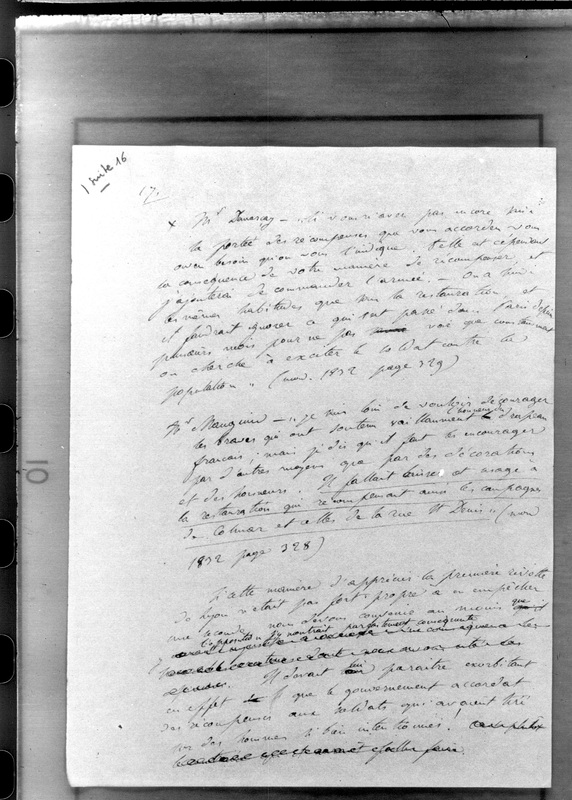 1 suite 16
17
x Mr — "Si vous n'avez pas encore
la portée des récompenses que vous accordez vous
avez besoin qu'on vous l'indique. Telle est cependant
la conséquence de votre manière de récompenser, et
j'ajouterai de commander l'armée. — On a suivi
les mêmes habitudes que sous la restauration, et
il faudrait ignorer ce qui s'est passé dans Paris depuis
plusieurs mois pour ne pas voir que constamment
on cherche à exciter le soldat contre la
population" (nov. 1832 page 329)
Mr Mauguin — "je suis loin de vouloir décourager
les braves qui ont soutenu vaillamment le drapeau
français; mais je dis qu'il faut les encourager
par d'autres moyens que par des décorations
et des honneurs. Il fallait laisser cet usage à
la restauration qui récompensait ainsi les campagnes
de Colmar et celles de la rue St Denis" (nov
1832 page 328)
Cette manière d'apprécier la première révolte
de Lyon n'était pas fort propre à en empêcher
une seconde, nous devons convenir au moins que
l'opposition s'y montrait parfaitement conséquente
Il devait lui paraître exorbitant
en effet que le gouvernement accordât
des récompenses aux soldats qui avaient tiré
sur des hommes si bien intentionnés!